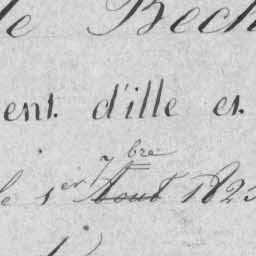 le Bech
ent. d'ille et.
7bre
le 1er Aout 182